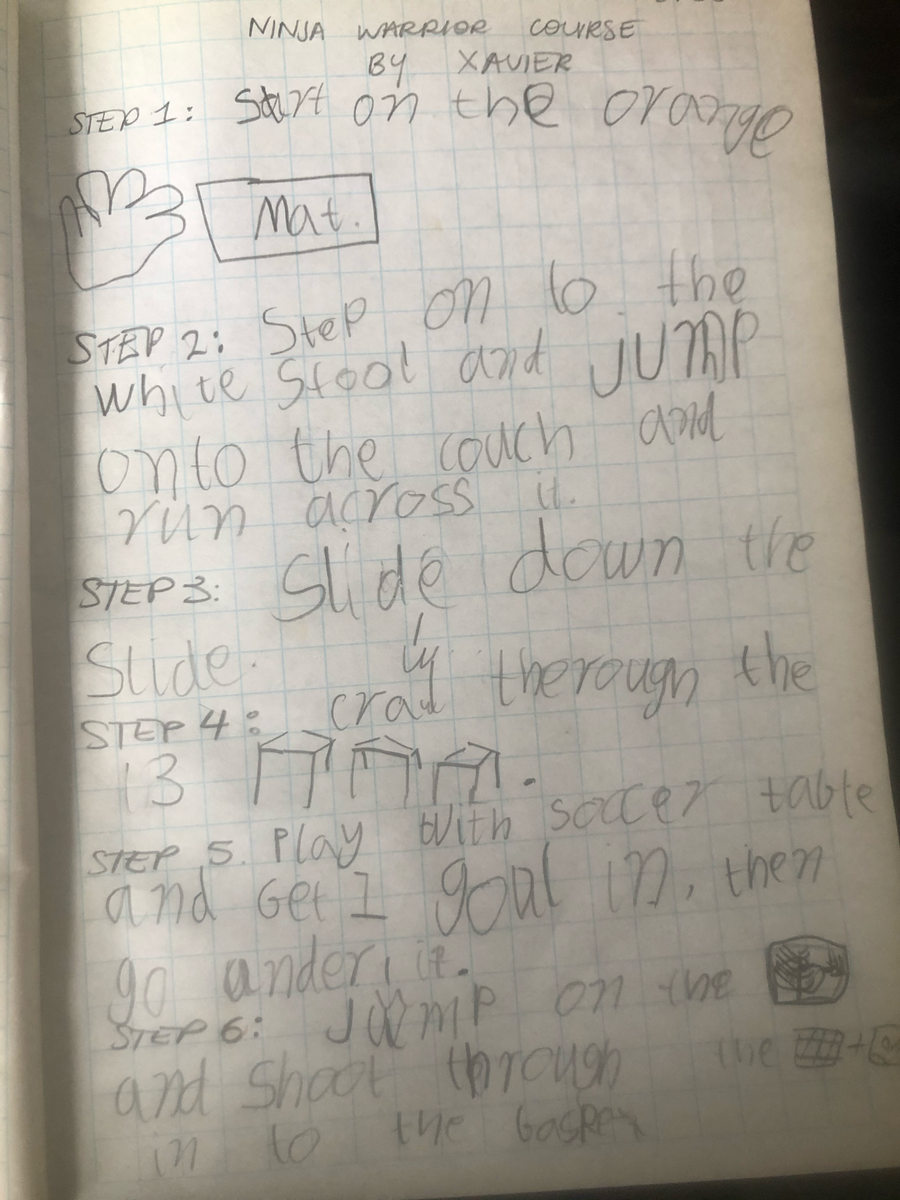 NINJA WARRIOR COURSE
BY XAVIER
STEP 1: Start on the orange
Mat.
STEP 2: Step on to the
white Stool and JUMP
onto the couch and
run across it.
STEP 3: Slide down the
Slide.
STEP 4: therough the
13
STEP 5. Play with soccer table
and Get 1 goal in, then
go ander it.
STEP 6: JUMP on the
and Shoot through the +
in to the